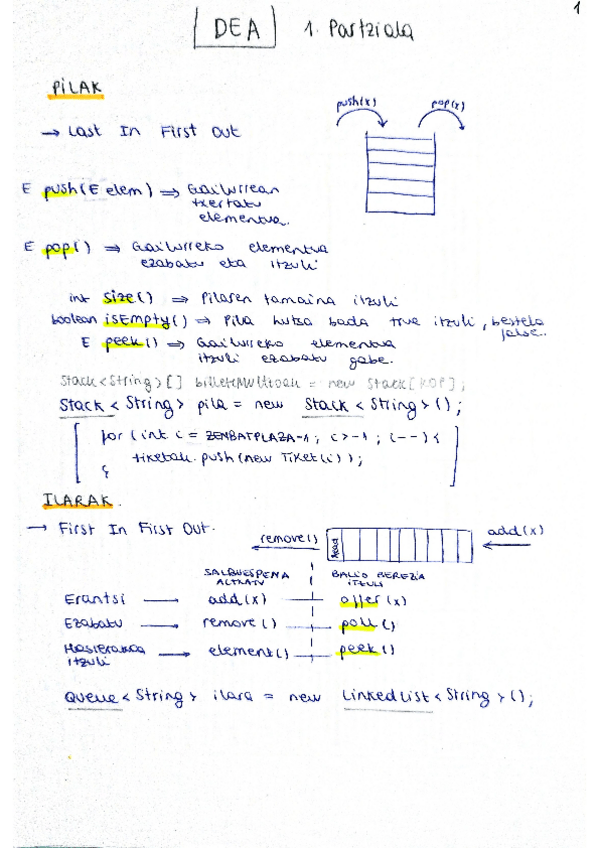 1
DEA 1. Partziala
PILAK
push(x) pop(x)
→ Last In First Out
E push(E elem) ⇒ Gailurrean
txertatu
elementua.
E pop() ⇒ Gailurreko elementua
ezabatu eta itzuli
int size() ⇒ Pilaren tamaina itzuli
boolean isEmpty() ⇒ Pila hutsa bada true itzuli, bestela
false.
E peek() ⇒ Gailurreko elementua
itzuli ezabatu gabe.
Stack<String>[] billeteMultzoak = new Stack[KOP];
Stack<String> pila = new Stack<String>();
for (int i = ZENBATPLAZA-1; i>-1; i--){
tiketak.push(new Tiket(i));
}
ILARAK.
→ First In First Out.
remove() Head add(x)
SALBUESPENA
ALTXATU
BALIO BEREZIA
ITZULI
Erantsi → add(x) offer(x)
Ezabatu → remove() poll()
Hasierakoa
itzuli → element() peek()
Queue<String> ilara = new LinkedList<String>();